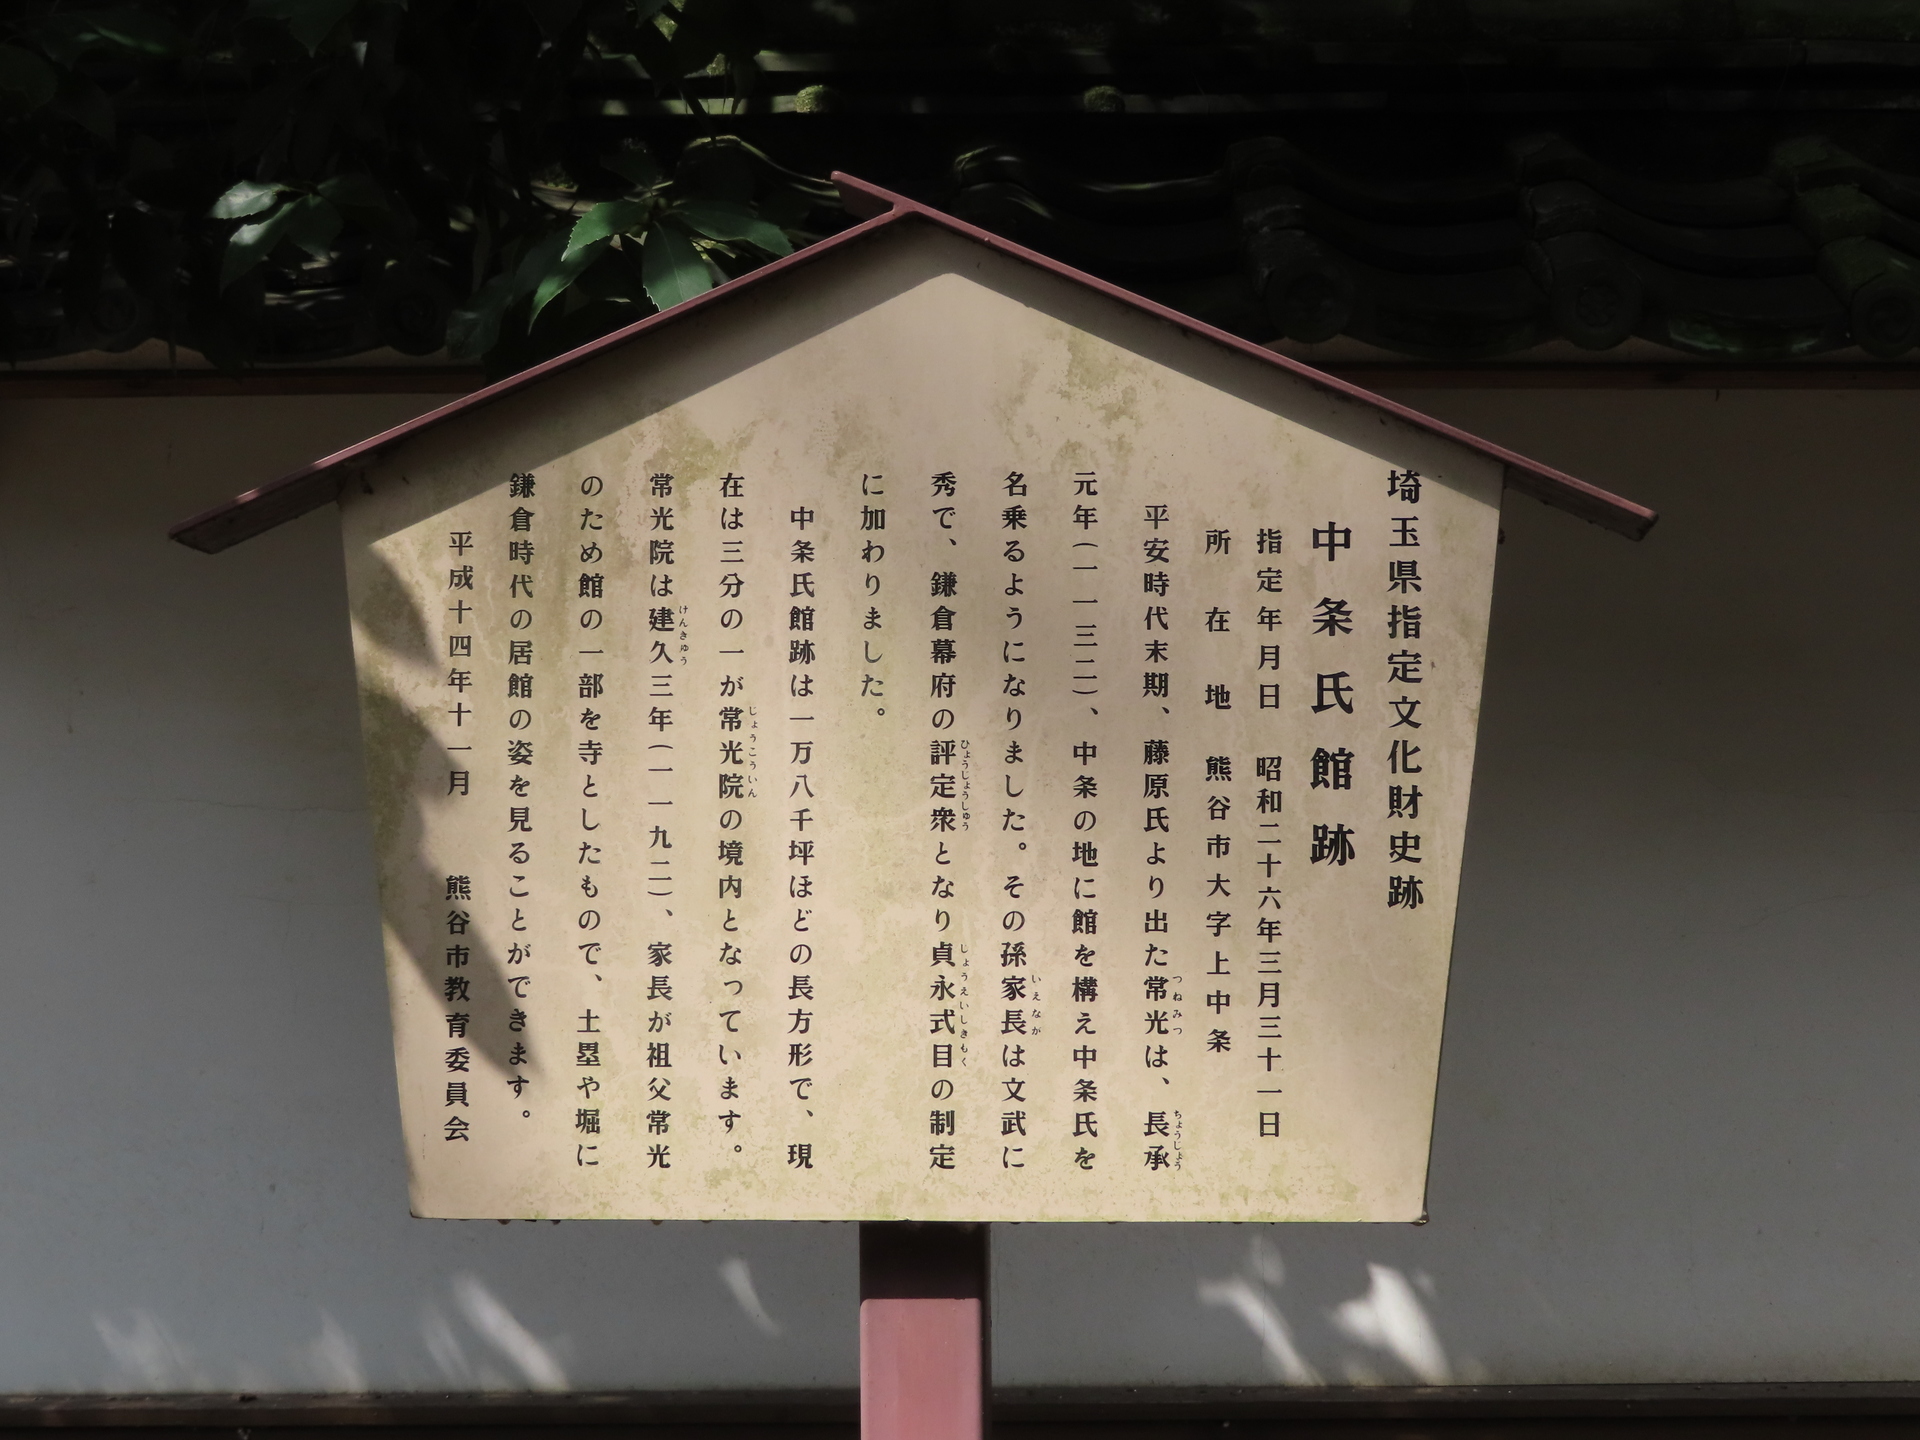 埼玉県指定文化財史跡
中条氏館跡
指定年月日 昭和二十六年三月三十一日
所在地 熊谷市大字上中条
平安時代末期、藤原氏より出た常光は、長承
つねみつ
ちょうじょう
元年(一一三二)、中条の地に館を構え中条氏を
名乗るようになりました。その孫家長は文武に
いえなが
秀で、鎌倉幕府の評定衆となり貞永式目の制定
ひょうじょうしゅう
じょうえいしきもく
に加わりました。
中条氏館跡は一万八千坪ほどの長方形で、現
在は三分の一が常光院の境内となっています。
じょうこういん
常光院は建久三年(一一九二)、家長が祖父常光
けんきゆう
のため館の一部を寺としたもので、土塁や堀に
鎌倉時代の居館の姿を見ることができます。
平成十四年十一月 熊谷市教育委員会